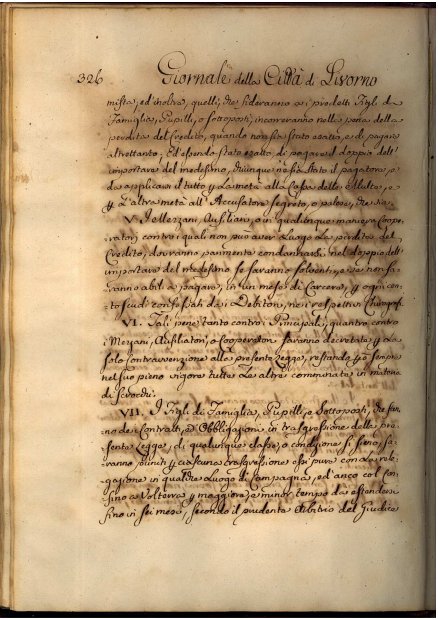 326 Giornale della Città di Livorno
mista, ed inoltre, quelli, che fideranno a i predetti Figli di
Famiglia, Pupilli, o sottoposti, incorreranno nella pena della
perdita del Credito, quando non sia stato esatto, e di pagare
altrettanto, Ed essendo stato esatto, di pagare il doppio dell'
importare del medesimo, chiunque ne sia stato il pagatore, e
da applicarsi il tutto per la metà alla Cassa delle Multe, e
per l'altra metà all'Accusatore segreto, o palese, che sia.
V. I Mezzani, Ausiliari, o in qualunque maniera Coope
ratori contro i quali non può aver Luogo la perdita del
Credito, dovranno parimente condannarsi nel doppio dell'
importare del medesimo se saranno solventi, e se non sa
ranno abili a pagare, in un mese di Carcere, per ogni cen
to scudi confessati da i Debitori, nei respettivi Chirografi.
VI. Tali pene tanto contro i Principali, quanto contro
i Mezzani, Ausiliatori, o Cooperatori saranno decretate per la
solo contravvenzione alla presente Legge, restando per sempre
nel suo pieno vigore tutte le altre comminate in materia
di Scrocchi.
VII. I Figli di Famiglia, Pupilli, e Sottoposti, che faran
no dei Contratti, o Obbligazioni in trasgressione della pre
sente Legge, di qualunque classe, o condizione si sieno, sa
ranno puniti per ciascuna trasgressione o sia pure con la rele
gazione in qualche Luogo di Campagna, ed anco col Con
fino a Volterra per maggiore, o minor tempo da estendersi
fino in sei mesi, secondo il prudente Arbitrio del Giudice